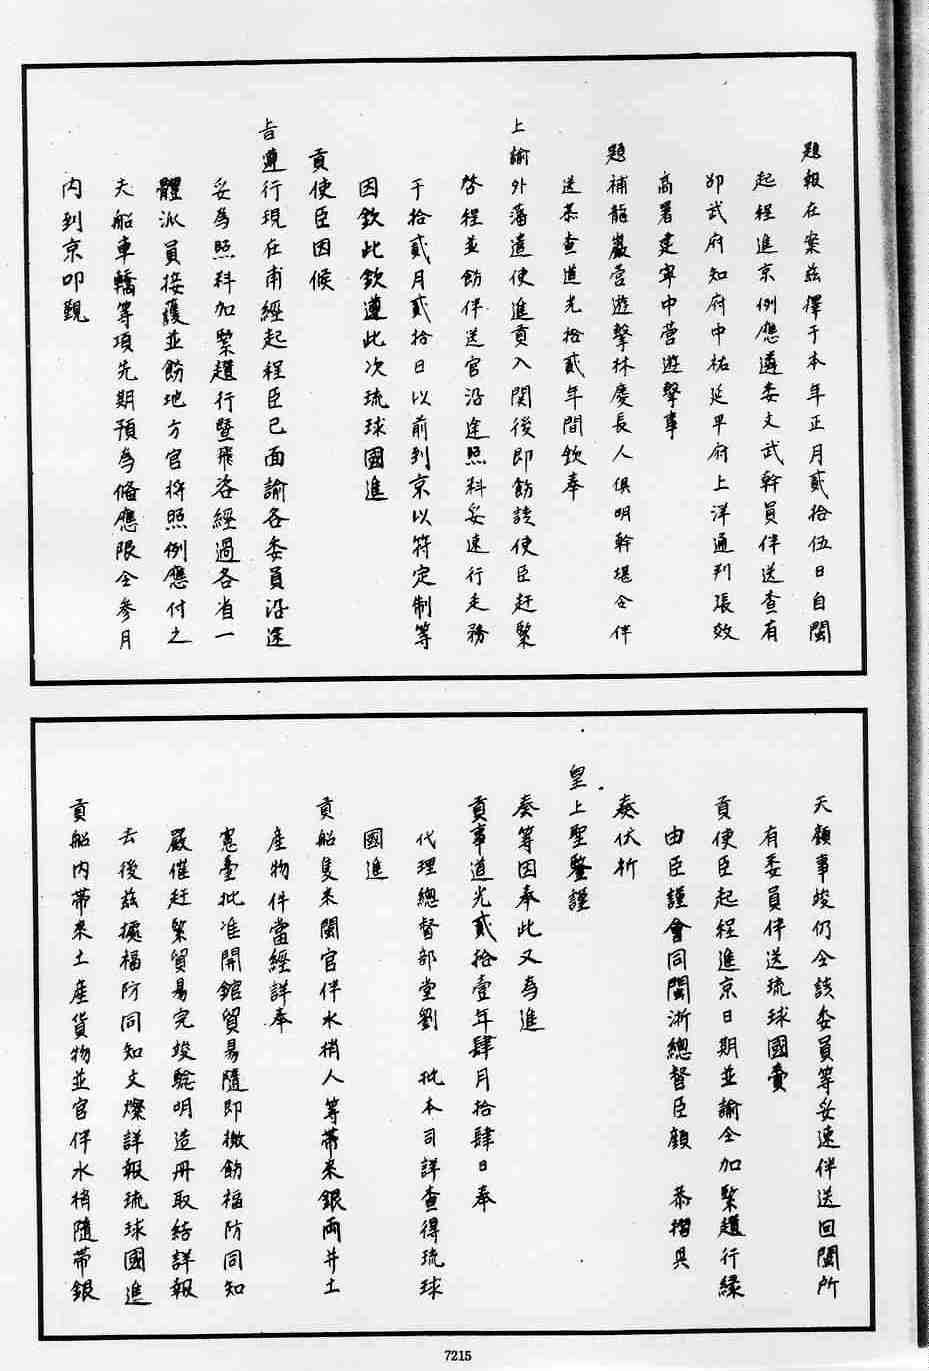 題報在案茲擇于本年正月貳拾伍日自閩
起程進京例應遴委文武幹員伴送查有
邵武府知府中祐延平府上洋通判張效
高署建寧中營遊擊事
題補龍巖營遊擊林慶長人俱明幹堪令伴
送恭查道光拾貳年間欽奉
上諭外藩遣使進貢入関後即飭該使臣赶緊
啓程並飭伴送官沿途照料妥速行走務
于拾貳月貳拾日以前到京以符定制等
因欽此欽遵此次琉球國進
貢使臣因候
旨遵行現在甫經起程臣已面諭各委員沿途
妥為照料加緊趲行暨飛咨經過各省一
體派員接護並飭地方官將照例應付之
夫船車轎等項先期預為俻應限仝參月
內到京叩覲
天顔事竣仍令該委員等妥速伴送囬閩所
有委員伴送琉球國賫
貢使臣起程進京日期並諭令加緊趲行緣
由臣謹會同閩浙總督臣顔 恭摺具
奏伏祈
皇上聖鑒謹
奏等因奉此又為進
貢事道光貳拾壹年肆月拾肆日奉
代理總督部堂劉 批本司詳查得琉球
國進
貢船隻来閩官伴水梢人等帯来銀両并土
産物件當經詳奉
憲臺批准開館貿昜隨即檄飭福防同知
嚴催赶緊貿昜完竣騐明造冊取结詳報
去後茲據福防同知文燦詳報琉球國進
貢船內帯来土産貨物並官伴水梢隨帯銀
7215